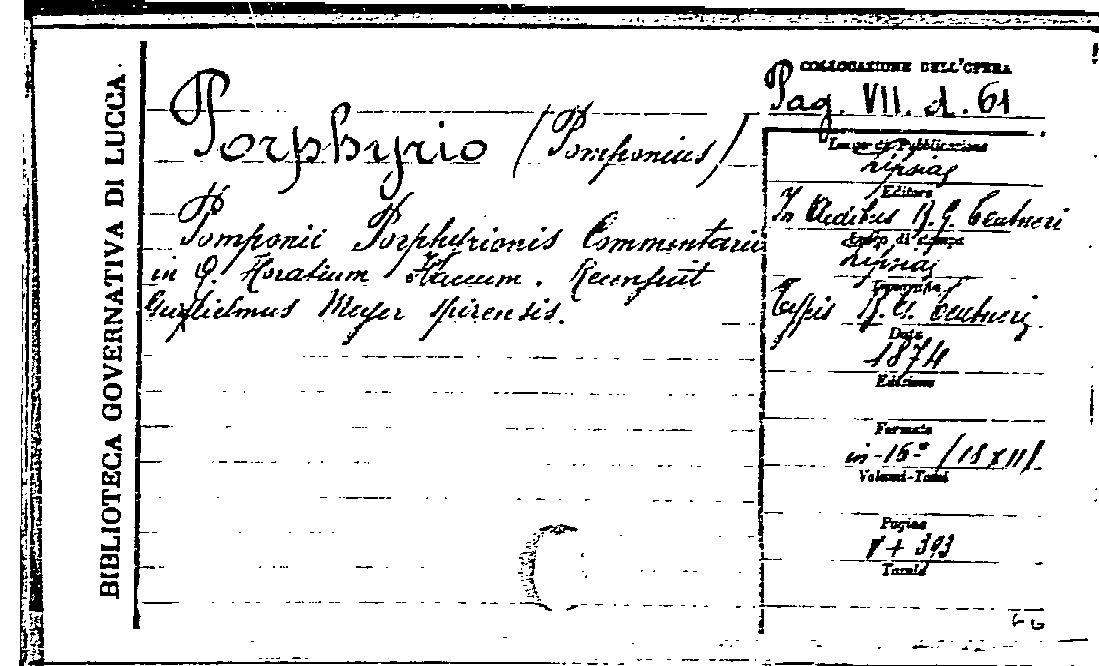 BIBLIOTECA GOVERNATIVA DI LUCCA.
COLLOCAZIONE DELL'OPERA
Pag. VII. d. 61
Porphyrio (Pomponius)
Pomponii Porphyrionis Commentarii
in Q. Horatium Flaccum. Recensuit
Guglielmus Meyer spirensis.
Luogo di Pubblicazione
Lipsiae
Editore
In Aedibus B. G. Teubneri
Luogo di stampa
Lipsiae
Tipografia
Typis B. G. Teubneri
Data
1874
Edizione
Formato
in-16° (18x11)
Volumi-Tomi
Pagine
V + 393
Tavole